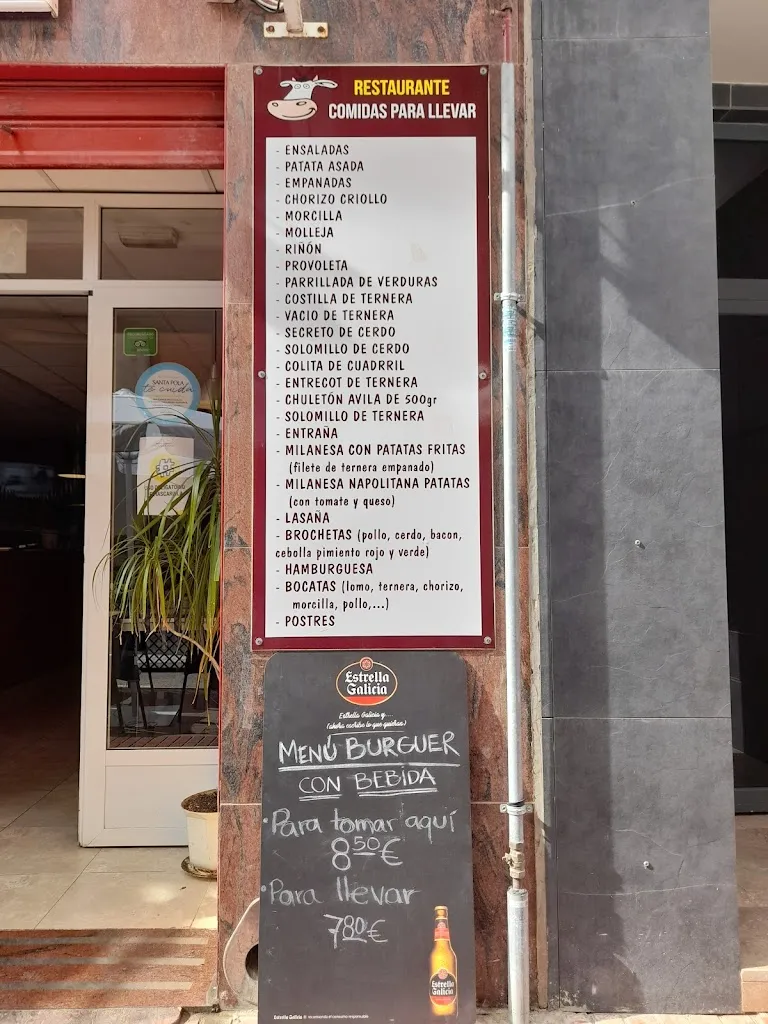 RESTAURANTE
COMIDAS PARA LLEVAR
- ENSALADAS
- PATATA ASADA
- EMPANADAS
- CHORIZO CRIOLLO
- MORCILLA
- MOLLEJA
- RIÑÓN
- PROVOLETA
- PARRILLADA DE VERDURAS
- COSTILLA DE TERNERA
- VACIO DE TERNERA
- SECRETO DE CERDO
- SOLOMILLO DE CERDO
- COLITA DE CUADRRIL
- ENTRECOT DE TERNERA
- CHULETÓN AVILA DE 500gr
- SOLOMILLO DE TERNERA
- ENTRAÑA
- MILANESA CON PATATAS FRITAS
(filete de ternera empanado)
- MILANESA NAPOLITANA PATATAS
(con tomate y queso)
- LASAÑA
- BROCHETAS (pollo, cerdo, bacon,
cebolla pimiento rojo y verde)
- HAMBURGUESA
- BOCATAS (lomo, ternera, chorizo,
morcilla, pollo,...)
- POSTRES
SANTA POLA
te cuida
Estrella
Galicia
Estrella Galicia y...
(ahora escribe lo que quieras)
MENÚ BURGUER
CON BEBIDA
· Para tomar aquí
8,50 €
· Para llevar
7,80 €
Estrella
Galicia